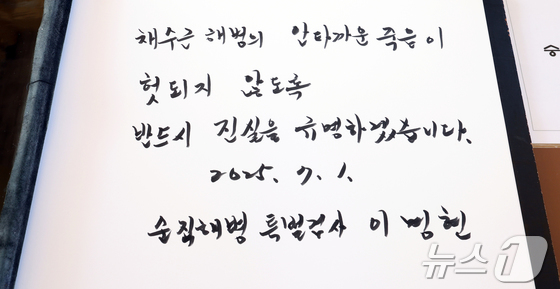 채수근 해병의 안타까운 죽음이
헛되지 않도록
반드시 진실을 규명하겠습니다.
2025. 7. 1.
순직해병 특별검사 이 명 현
승
뉴스1